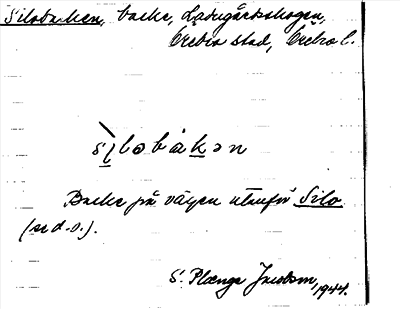 Silobacken, backe, Ladugårdsskogen,
Örebro stad, Örebro l.
sìlobàkən
Backe på vägen utanför Silo
(se d.o.).
S. Plænge Jacobson, 1944.